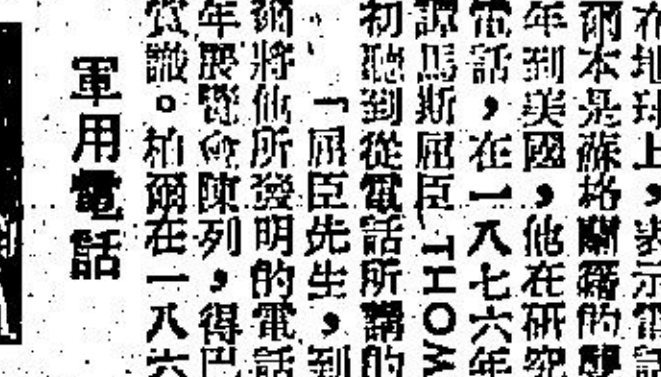 在地球上，表示電話
爾本是蘇格蘭籍的醫
年到美國，他在研究
電話，在一八七六年
譚馬斯屈臣 THOM
初聽到從電話所講的
「屈臣先生，到
爾將他所發明的電話
年展覽會陳列，得巴
賞識。柏爾在一八六
軍用電話